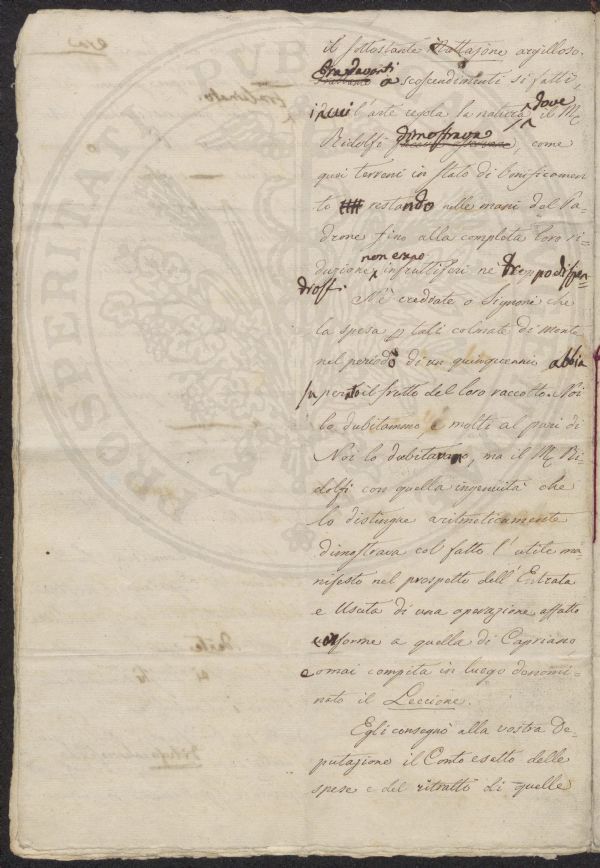 il sottostante Mattajone argilloso.
Fradavanti a scoscendimenti si fatti,
in cui l'arte regola la natura, dove il Mse
Ridolfi dimostrava, come
quei terreni in stato di bonificamen-
to restando nelle mani del Pa-
drone fino alla completa loro ri-
duzione non erano infruttiferi nè troppo dispen-
diosi
Nè crediate o Signori che
la spesa p tali colmate di monte
nel periodo di un quinquennio abbia
superato il frutto del loro raccolto. Noi
lo dubitammo, e molti al pari di
Noi lo dubitavano, ma il Mse Ri-
dolfi con quella ingenuità che
lo distingue aritmeticamente
dimostrava col fatto l'utile ma-
nifesto nel prospetto dell'Entrata
e Uscita di una operazione affatto
conforme a quella di Capriano
e omai compita in luogo denomi-
nato il Leccione.
Egli consegnò alla vostra De-
putazione il Conto esatto delle
spese e del ritratto di quelle